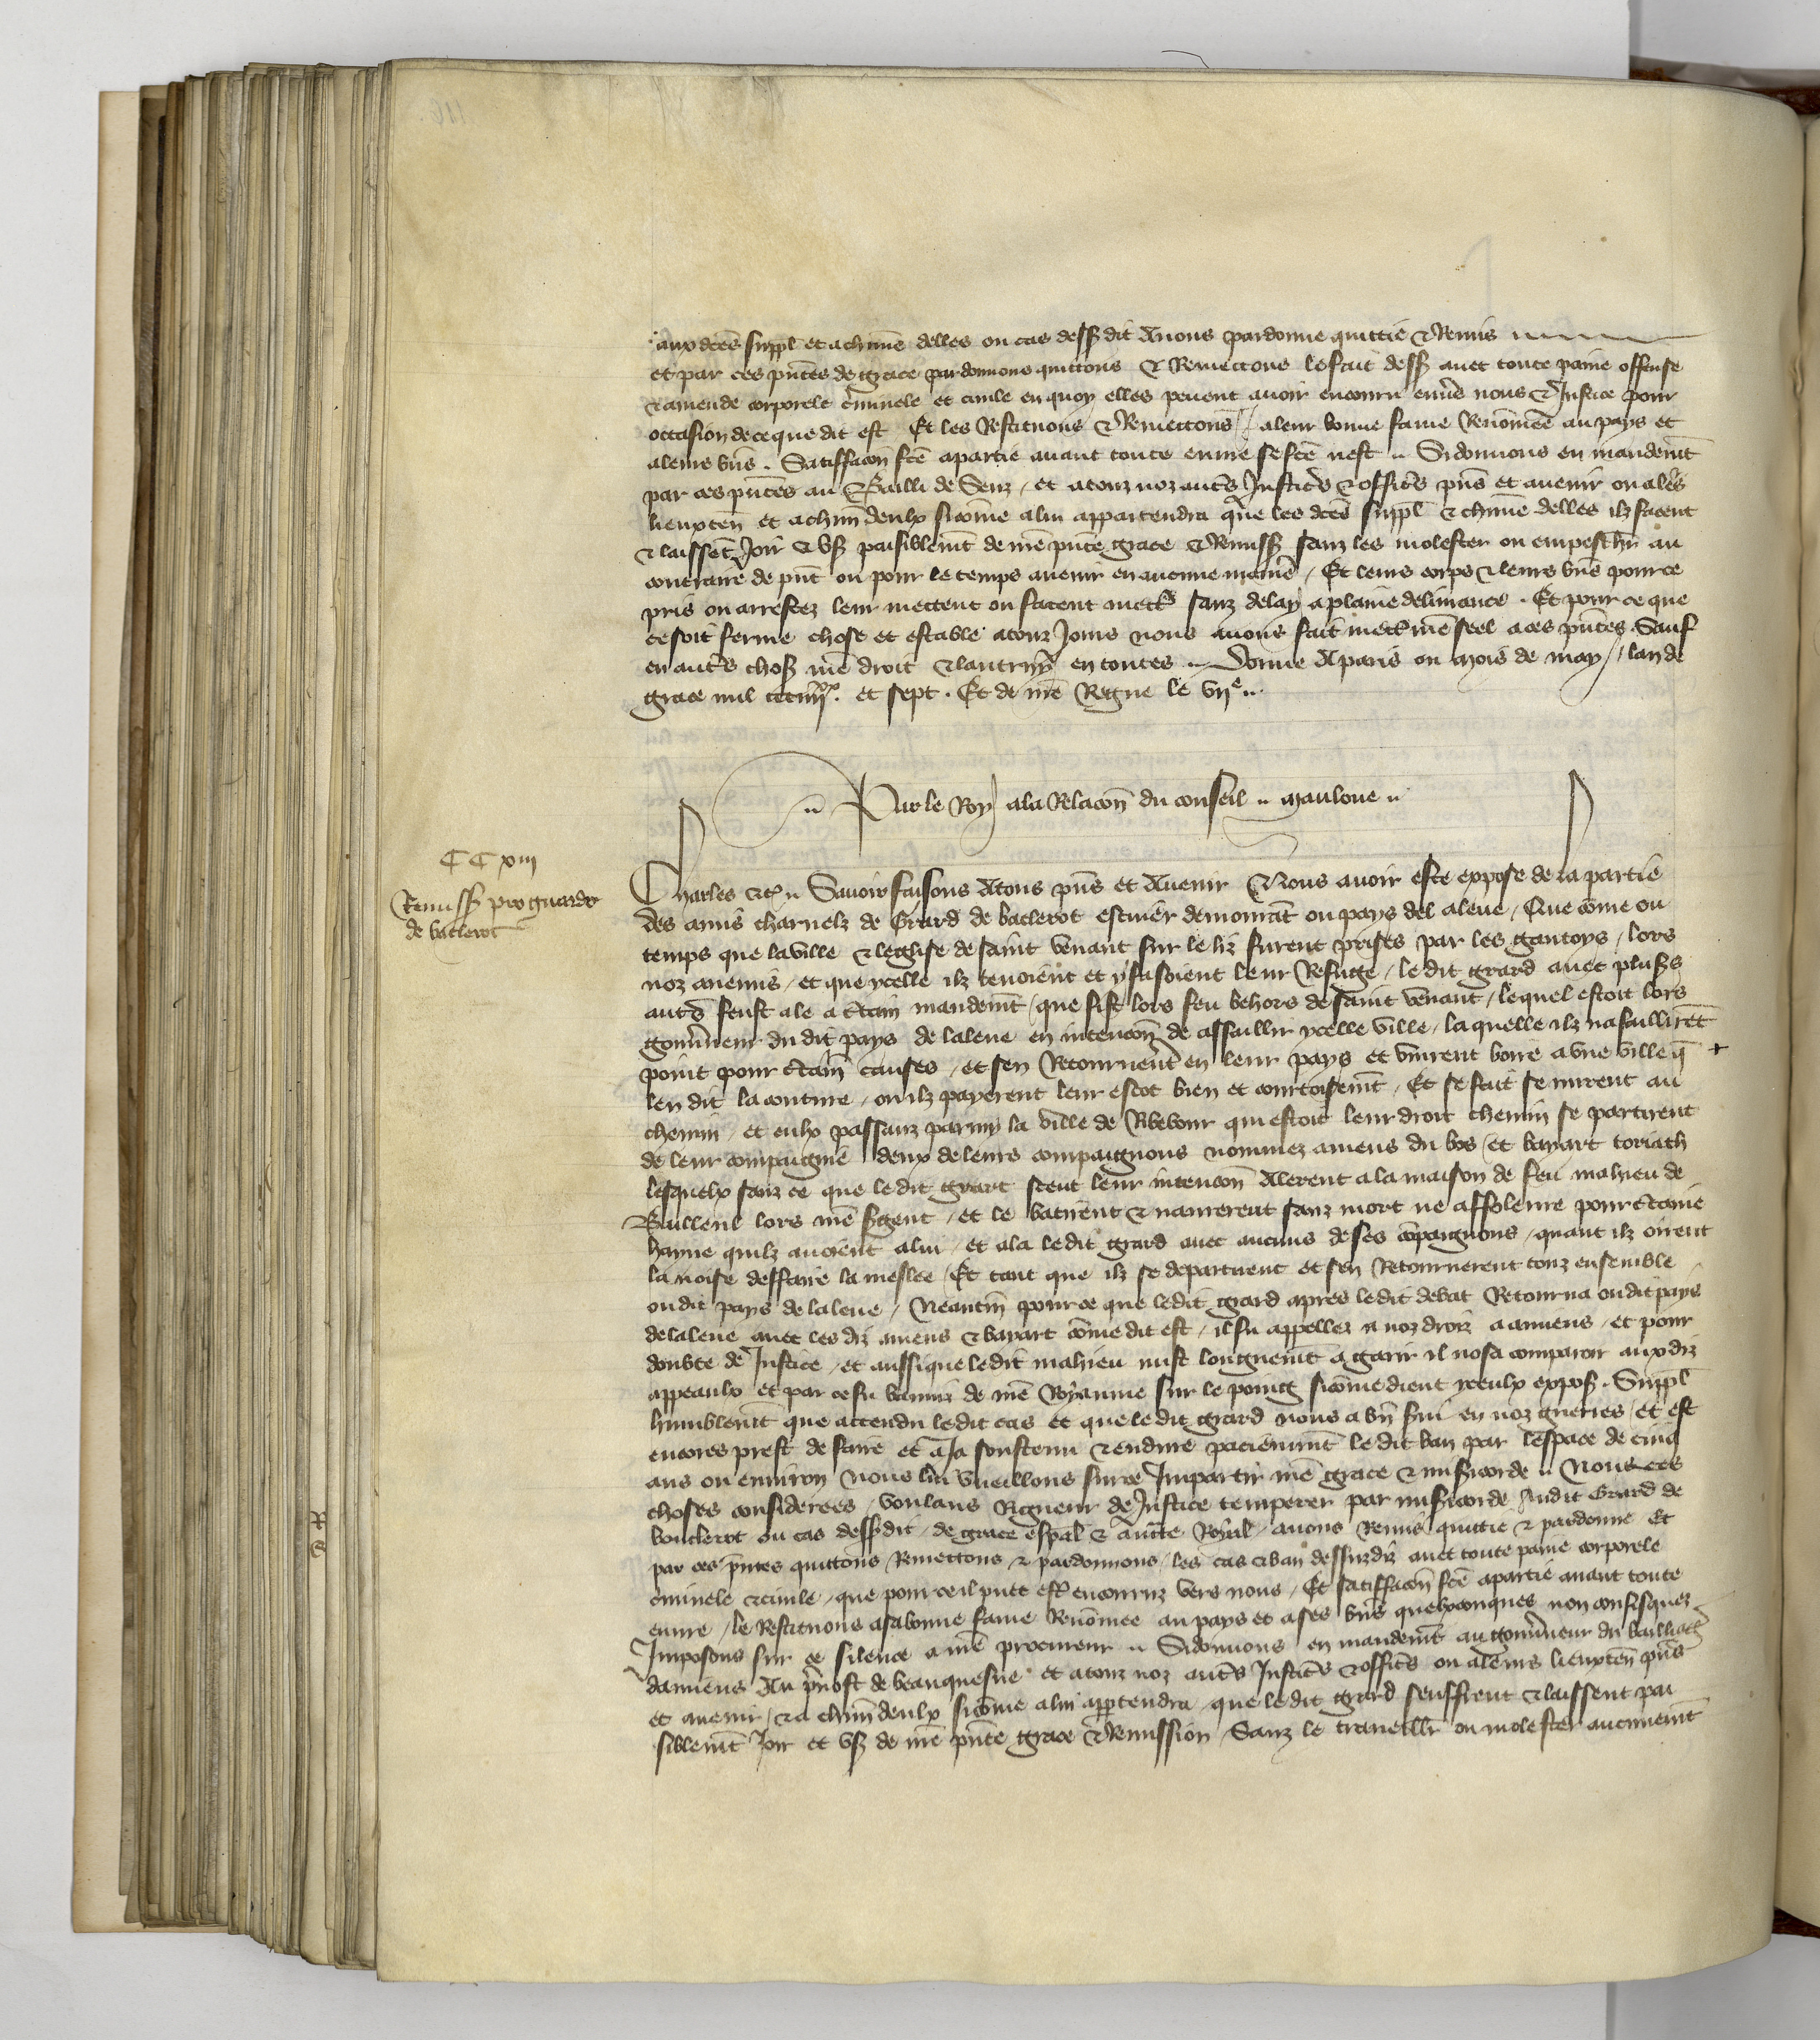 aux dctes suppl et achune delles ou cas dessus dit Avons pardonne quittie & Remis
et par ces pntes de grace pardonnons quittons & Remettons le fait dess avec toute paine offense
& amende corporele criminele et civile en quoy elles pevent avoir encouru envers nous & Justice pour
occasion de ce que dit est Et les Restituons & Remettons / a leur bonne fame Renommee au pays et
a leurs biens . Satisfacon fcte a partie avant toute euvre se fcte nest .. Si donnons en mandemt
par ces pntes au Bailli de Senz / et a touz noz autres Justiciers & officiers pns et avenir ou a leurs
lieuxten et a chun deulx sicome a lui appartendra que les dctes suppl & chune delles ilz facent
& laissent Joir & user paisiblemt de nre pnte grace & Remiss sanz les molester ou empeschr au
contraire de pnt ou pour le temps avenir en aucune maniere / Et leurs corps & leurs biens pour ce
pris ou arrestez leur mettent ou facent mettre sanz delay a plaine delivrance . Et pour ce que
ce soit ferme chose et estable a touz Jours nous avons fait mettre nre seel a ces pntes . Sauf
en autres choses nre droit & lautruy en toutes .. Donne A paris ou mois de may / lan de
grace mil ccc iiijxx. et sept . Et de nre Regne le vije ..
.. Par le Roy a la Relacon du conseil .. Mauloue ..
CC xiii
Remiss pro guardo
de baclerot
Charles &c .. Savoir faisons A tous pns et Avenir Nous avoir este expose de la partie
des amis charnelz de Grard de baclerot escuier demourant ou pays del aleue / Que come ou
temps que la ville & leglise de saint venant sur le liz furent prises par les gantoys / lors
noz anemis / et que ycelle ilz tenoient et y faisoient leur Refuge / le dit grard avec pluss
autres feust ale a certain mandemt / que fist lors feu behors de saint venant / lequel estoit lors
gouverneur du dit pays de laleue en intencon de assaillir ycelle ville / la quelle ilz nassaillirent
point pour certaines causes / et sen Retournerent en leur pays et vinrent boire a une ville q
len dit la couture / ou ilz payerent leur escot bien et courtoisemt / Et se fait se mirent au
chemin / et eulx passanz parmy la ville de Rebeour qui estoit leur droit chemin se partirent
de leur compaignie deux de leurs compaignons nommez amens du bos / et bayart toriach
lesquelx sanz ce que le dit grart sceut leur intencon Alerent a la maison de feu mahieu de
Bulleul lors nre sgent / et le batirent & navrerent sanz mort ne affoleure pour certaine
hayne quilz avoient a lui / et ala le dit grard avec aucuns de ses compaignons / quant ilz oirent
la noise deffaire la meslee / Et tant que ilz se departirent et sen Retournerent touz ensemble
ou dit pays de laleue / Neantm pource que le dit grard apres le dit debat Retourna ou dit pays
de laleue avec les diz amens & bayart come dit est / il fu appellez a noz droiz a amiens / et pour
doubte de Justice / et aussi que le dit mahieu mist longuemt a garir il nosa comparoir aux diz
appeaulx et par ce fu banniz de nre Royaume sur le poing sicome dient yceulx expos . Suppl
humblemt que attendu le dit cas et que le dit grard nous a bn servi en noz guerres / et est
encores prest de faire et a Ja soustenu & endure paciemmt le dit ban par lespace de cinq
ans ou environ Nous lui vueillons sur ce Impartir nre grace & misericorde .. Nous ces
choses considerees / voulans Rigueur de Justice temperer par misericorde Audit Grard de
boutlerot ou cas dessusdit / de grace espal & aucte Royal / avons Remis quittie & pardonne Et
par ces pntes quittons Remettons & pardonnons / les cas & ban dessusdiz avec toute paine corporele
criminele & civile / que pour ce il puet estre encouruz vers nous / Et satisfacon fcte a partie avant toute
euvre / le Restituons a sa bonne fame Renommee au pays et a ses biens quelxconques non confisquez
Imposons sur ce silence a nre procureur .. Si donnons en mandemt au gouverneur du bailliage
damiens Au prevost de beauquesne et a touz noz autres Justiciers & officiers ou a leurs lieuxten pns
et avenir / & a chun deulx sicome a lui appertendra que le dit grard seuffrent & laissent pai
siblemt Joir et user de nre pnte grace & Remission / Sanz le travaillr ou molester aucunemt